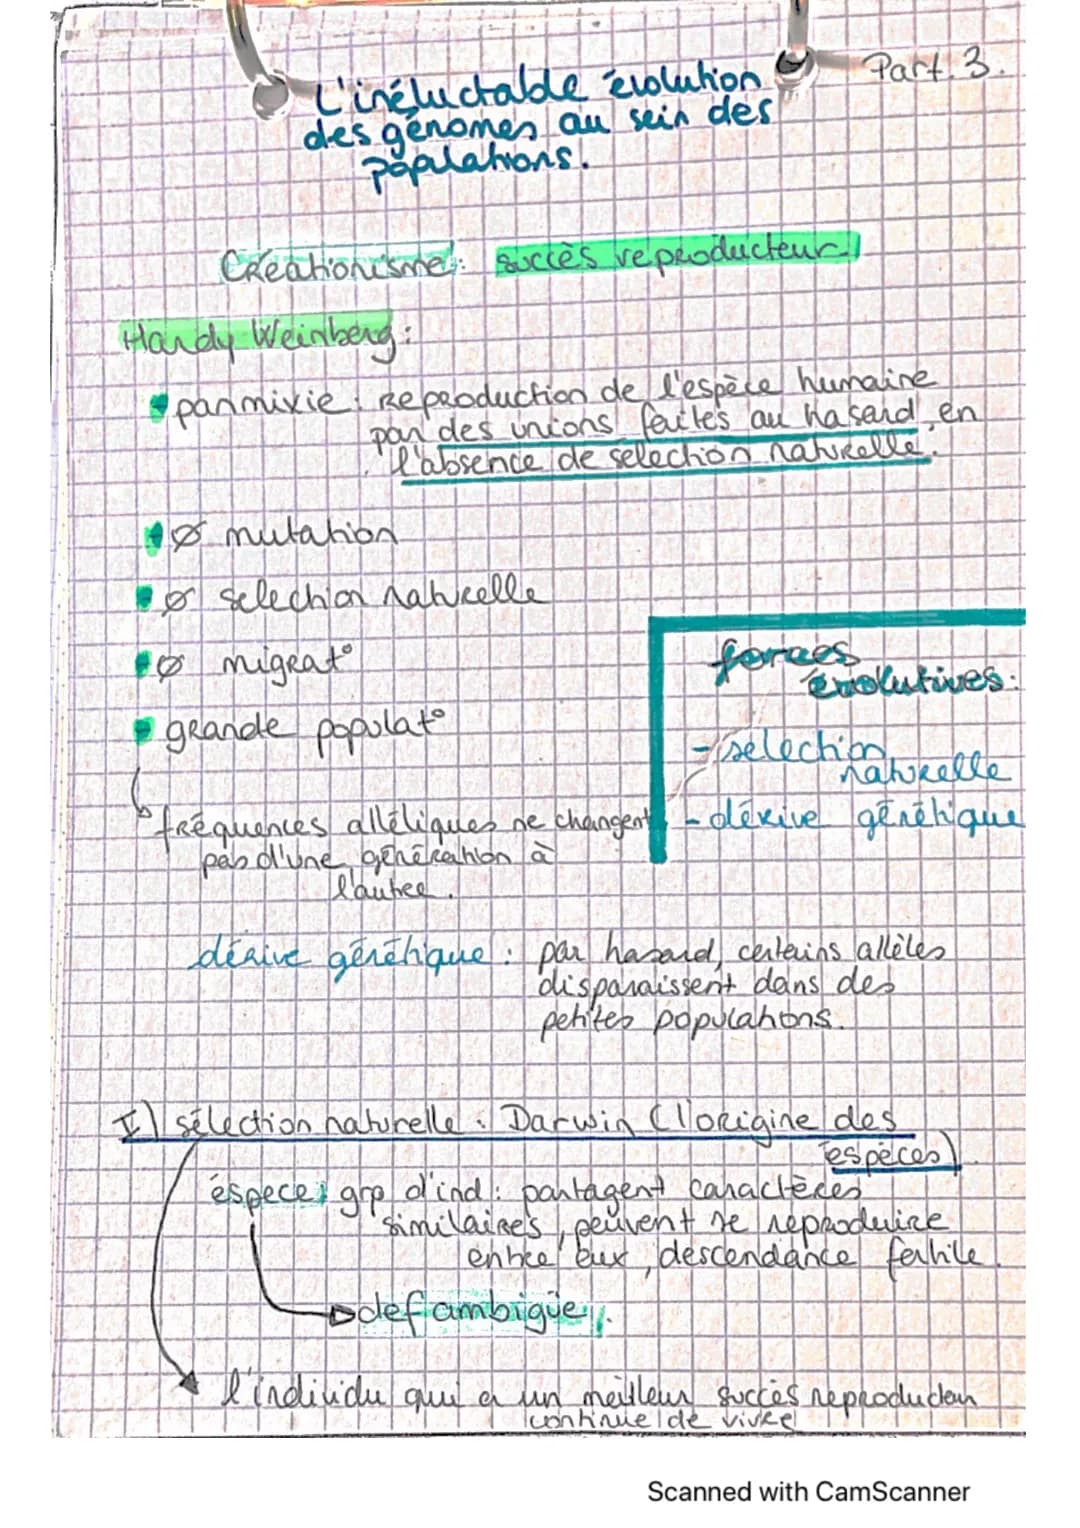 Part. 3.
L'inéluctable évolution
des génomes au sein des
populations.
Créationisme: succès reproducteur
Hardy Weinberg:
panmixie: Reproduction de l'espèce humaine
par des unions faites au hasard, en
l'absence de selection naturelle.
Ø mutation
Ø selection naturelle
Ø migrat°
grande populat°
forces
évolutives:
- selection
naturelle
- dérive génétique
fréquences alléliques ne changent
pas d'une génération à
l'autre.
dérive génétique: par hasard, certains allèles
disparaissent dans des
petites populations.
I) sélection naturelle: Darwin (l'origine des
espèces)
éspece: grp d'ind: partagent caractères
similaires, peuvent se reproduire
entre eux, descendance fertile.
def ambigüe.
l'individu qui a un meilleur succès reproducteur
continue de vivre
Scanned with CamScanner